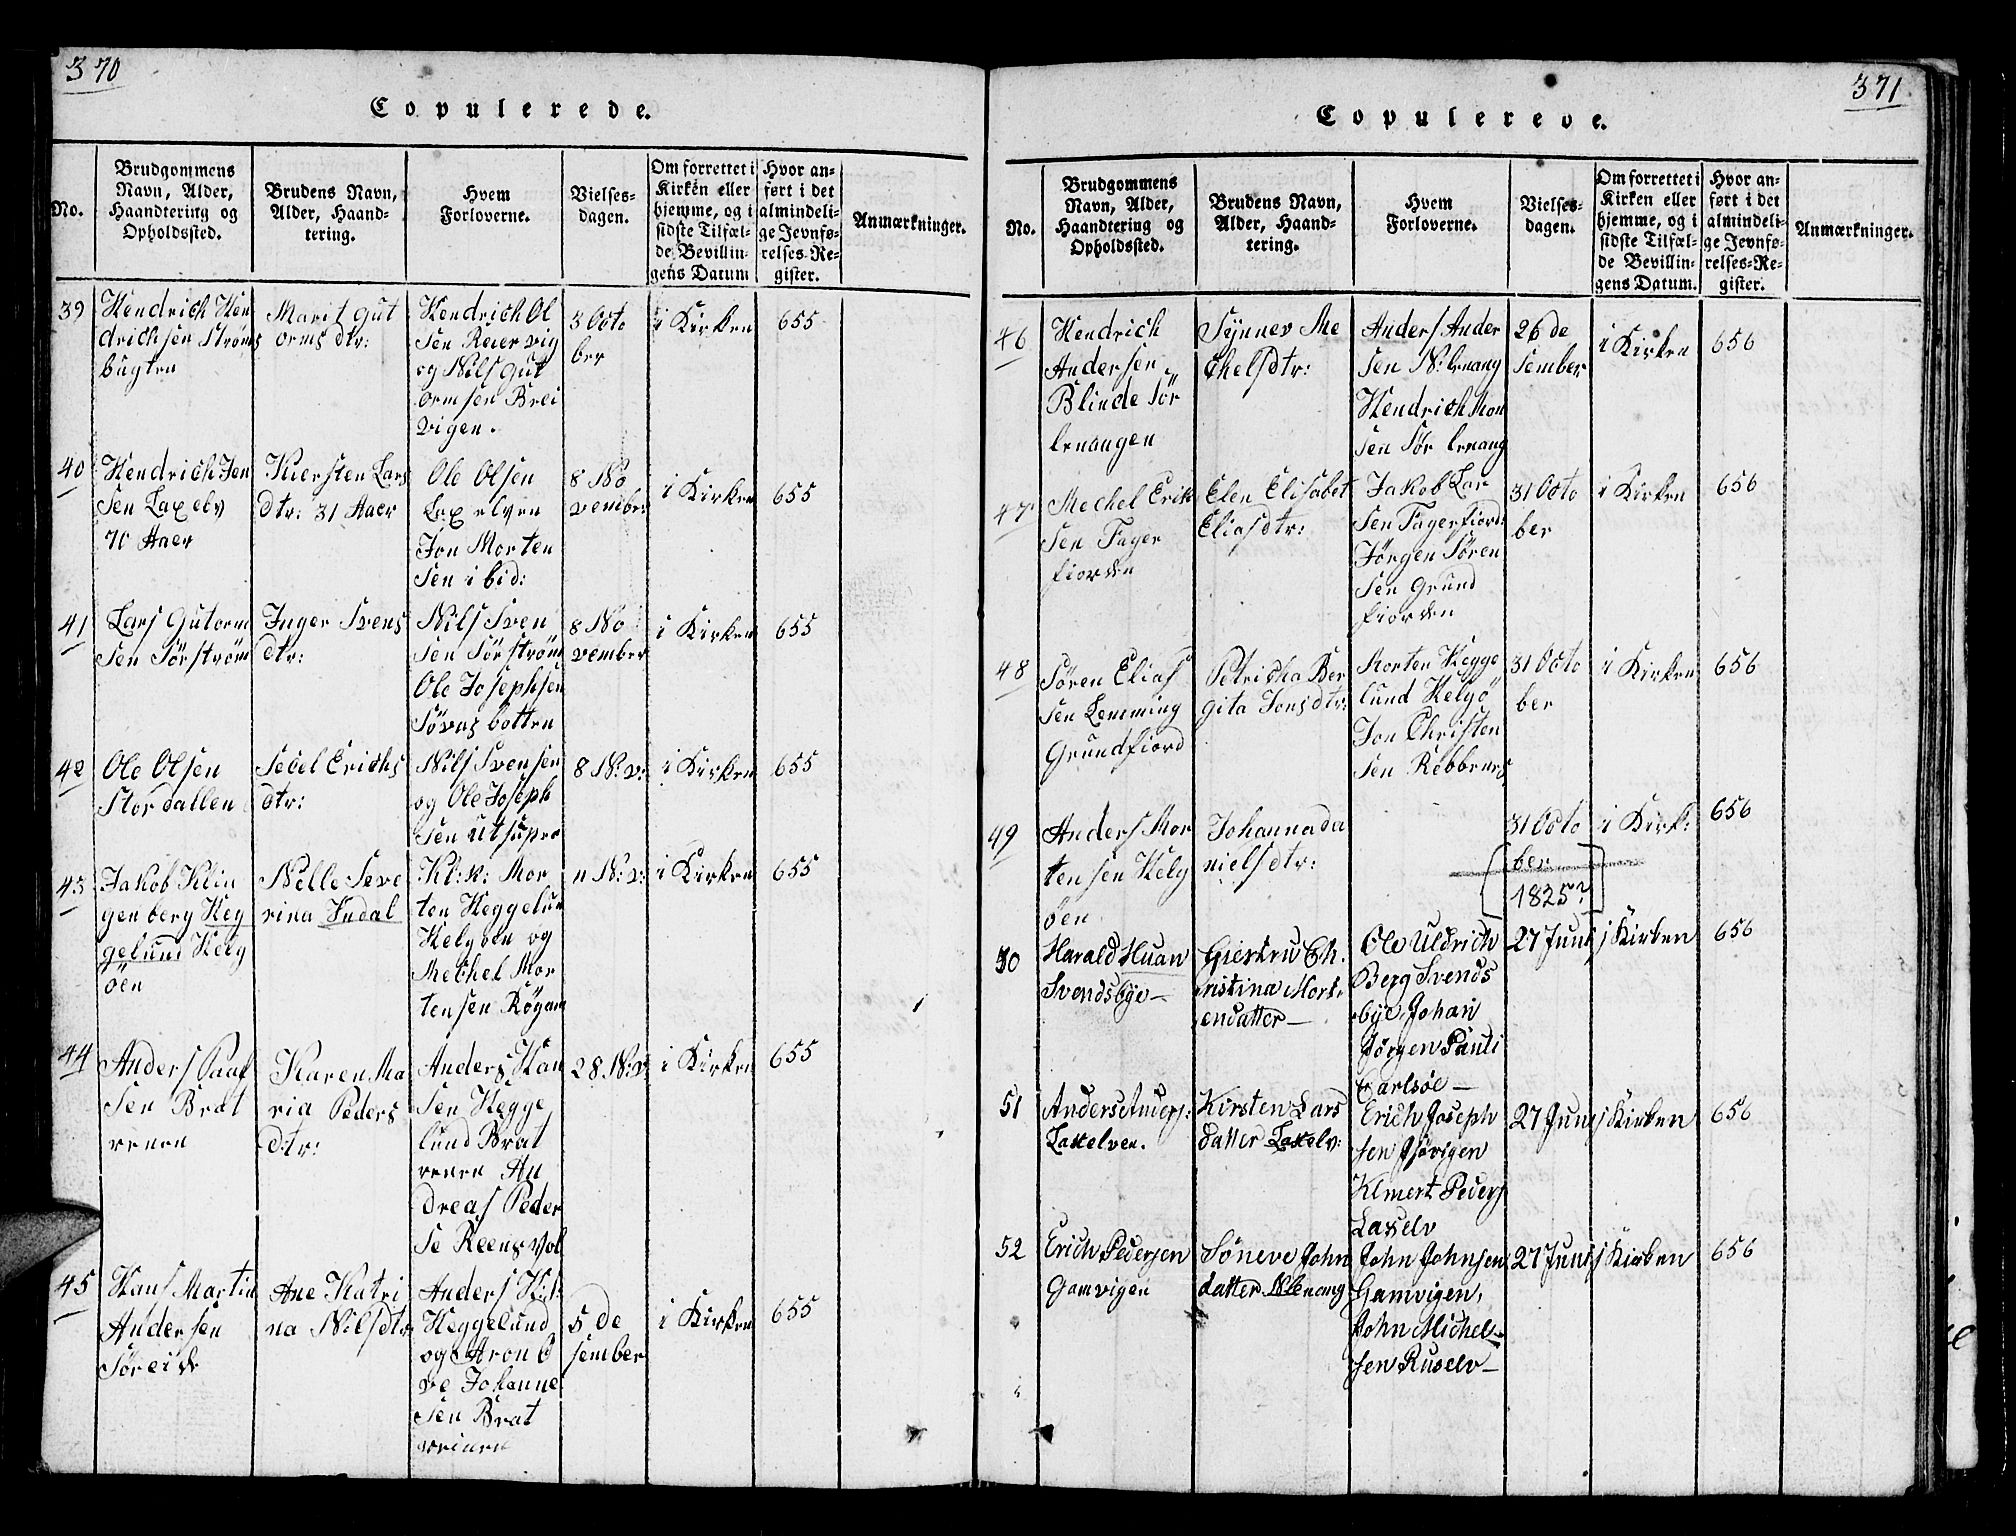 370
Copulerede.
No.
Brudgommens
Navn, Alder,
Haandtering og
Opholdssted.
Brudens Navn,
Alder, Haand-
tering.
Hvem
Forloverne.
Vielses-
dagen.
Om forrettet i
Kirken eller
hjemme, og i
sidste Tilfæl-
de Bevillin-
gens Datum
Hvor an-
ført i det
almindeli-
ge Jevnfø-
relses-Re-
gister.
Anmærkninger.
39
Hendrich Hen
drichsen Ströms
bugten
Marit Gut
orms dtr:
Hendrich Ol
sen Reiervig
og Nils Gut
ormsen Brei
vigen.
3 Octo
ber
i Kirken
655
40
Hendrich Jen
sen Laxelv
70 Aaer
Kiersten Lars
dtr: 31 Aaer
Ole Olsen
Laxelven
Jon Morten
sen ibid:
8 No
vember
i Kirken
655
41
Lars Gutorm
sen Sörström
Inger Svens
dtr:
Nils Sven
sen Sörström
Ole Josephsen
Sövasbotten
8 No
vember
i Kirken
655
42
Ole Olsen
Stordallen
Sebel Erichs
dtr:
Nils Svensen
og Ole Joseph
sen ut supra
8 N:v:
i Kirken
655
43
Jakob Klin
genberg Heg
gelund Helg
öen
Nelle Seve
rina Indal
Kl:k: Mor
ten Heggelun
Helgöen og
Mechel Mor
tensen Rögan
11 N:v:
i Kirken
655
44
Anders Paal
sen Brat
renen
Karen Ma
ria Peders
dtr:
Anders Han
sen Hegge
lund Brat
renen An
dreas Peder
se Reensvol
28 N:v:
i Kirken
655
45
Hans Martin
Andersen
Söreide
Ane Katri
na Nilsdtr
Anders H:l:
Heggelund
og Aron O
ve Johanne
sen Brat
vreinen
5 de
sember
i Kirken
655
371
Copulerede.
No.
Brudgommens
Navn, Alder,
Haandtering og
Opholdssted.
Brudens Navn,
Alder, Haand-
tering.
Hvem
Forloverne.
Vielses-
dagen.
Om forrettet i
Kirken eller
hjemme, og i
sidste Tilfæl-
de Bevillin-
gens Datum.
Hvor an-
ført i det
almindeli-
ge Jevnfø-
relses-Re-
gister.
Anmærkninger.
46
Hendrich
Andersen
Blinde Sör
lenangen
Synnev Me
chelsdtr:
Anders Ander
sen N:lenang
Hendrich Mon
sen Sør lenang
26 de
sember
i Kirken
656
47
Mechel Erik
sen Fager
fiorden
Elen Elisabet
Eliasdtr:
Jakob Lar
sen Fagerfiord:
Jörgen Sören
sen Grund
fiorden
31 Octo
ber
i Kirken
656
48
Sören Elias
sen Lemming
Grundfiord
Petricha Ber
gita Jonsdtr:
Morten Hegge
lund Helgö
Jon Christen
sen Rebbenes
31 Octo
ber
i Kirken
656
49
Anders Mor
tensen Helg
öen
Johanna da
nielsdtr:
31 Octo
ber
1825?
i Kirk:
656
50
Harald Huan
Svendsbye-
Giertru Ch.
ristina Mort.
endatter-
Ole Uldrich
Berg Svends
bye, Johan
Jørgen Pauli
Carlsöe-
27 Juni
i Kirken
656
51
Anders Anders:
Laxelven.
Kirsten Lars
datter Laxelv:
Erich Joseph
sen Jsövigen
Klmert Peders
Laxelv
27 Juni
i Kirken
656
52
Erich Pedersen
Gamvigen
Söneve John
datter Nlenang
John Johnsen
Gamvigen,
John Michel-
sen Ruselv-
27 Juni
i Kirken
656